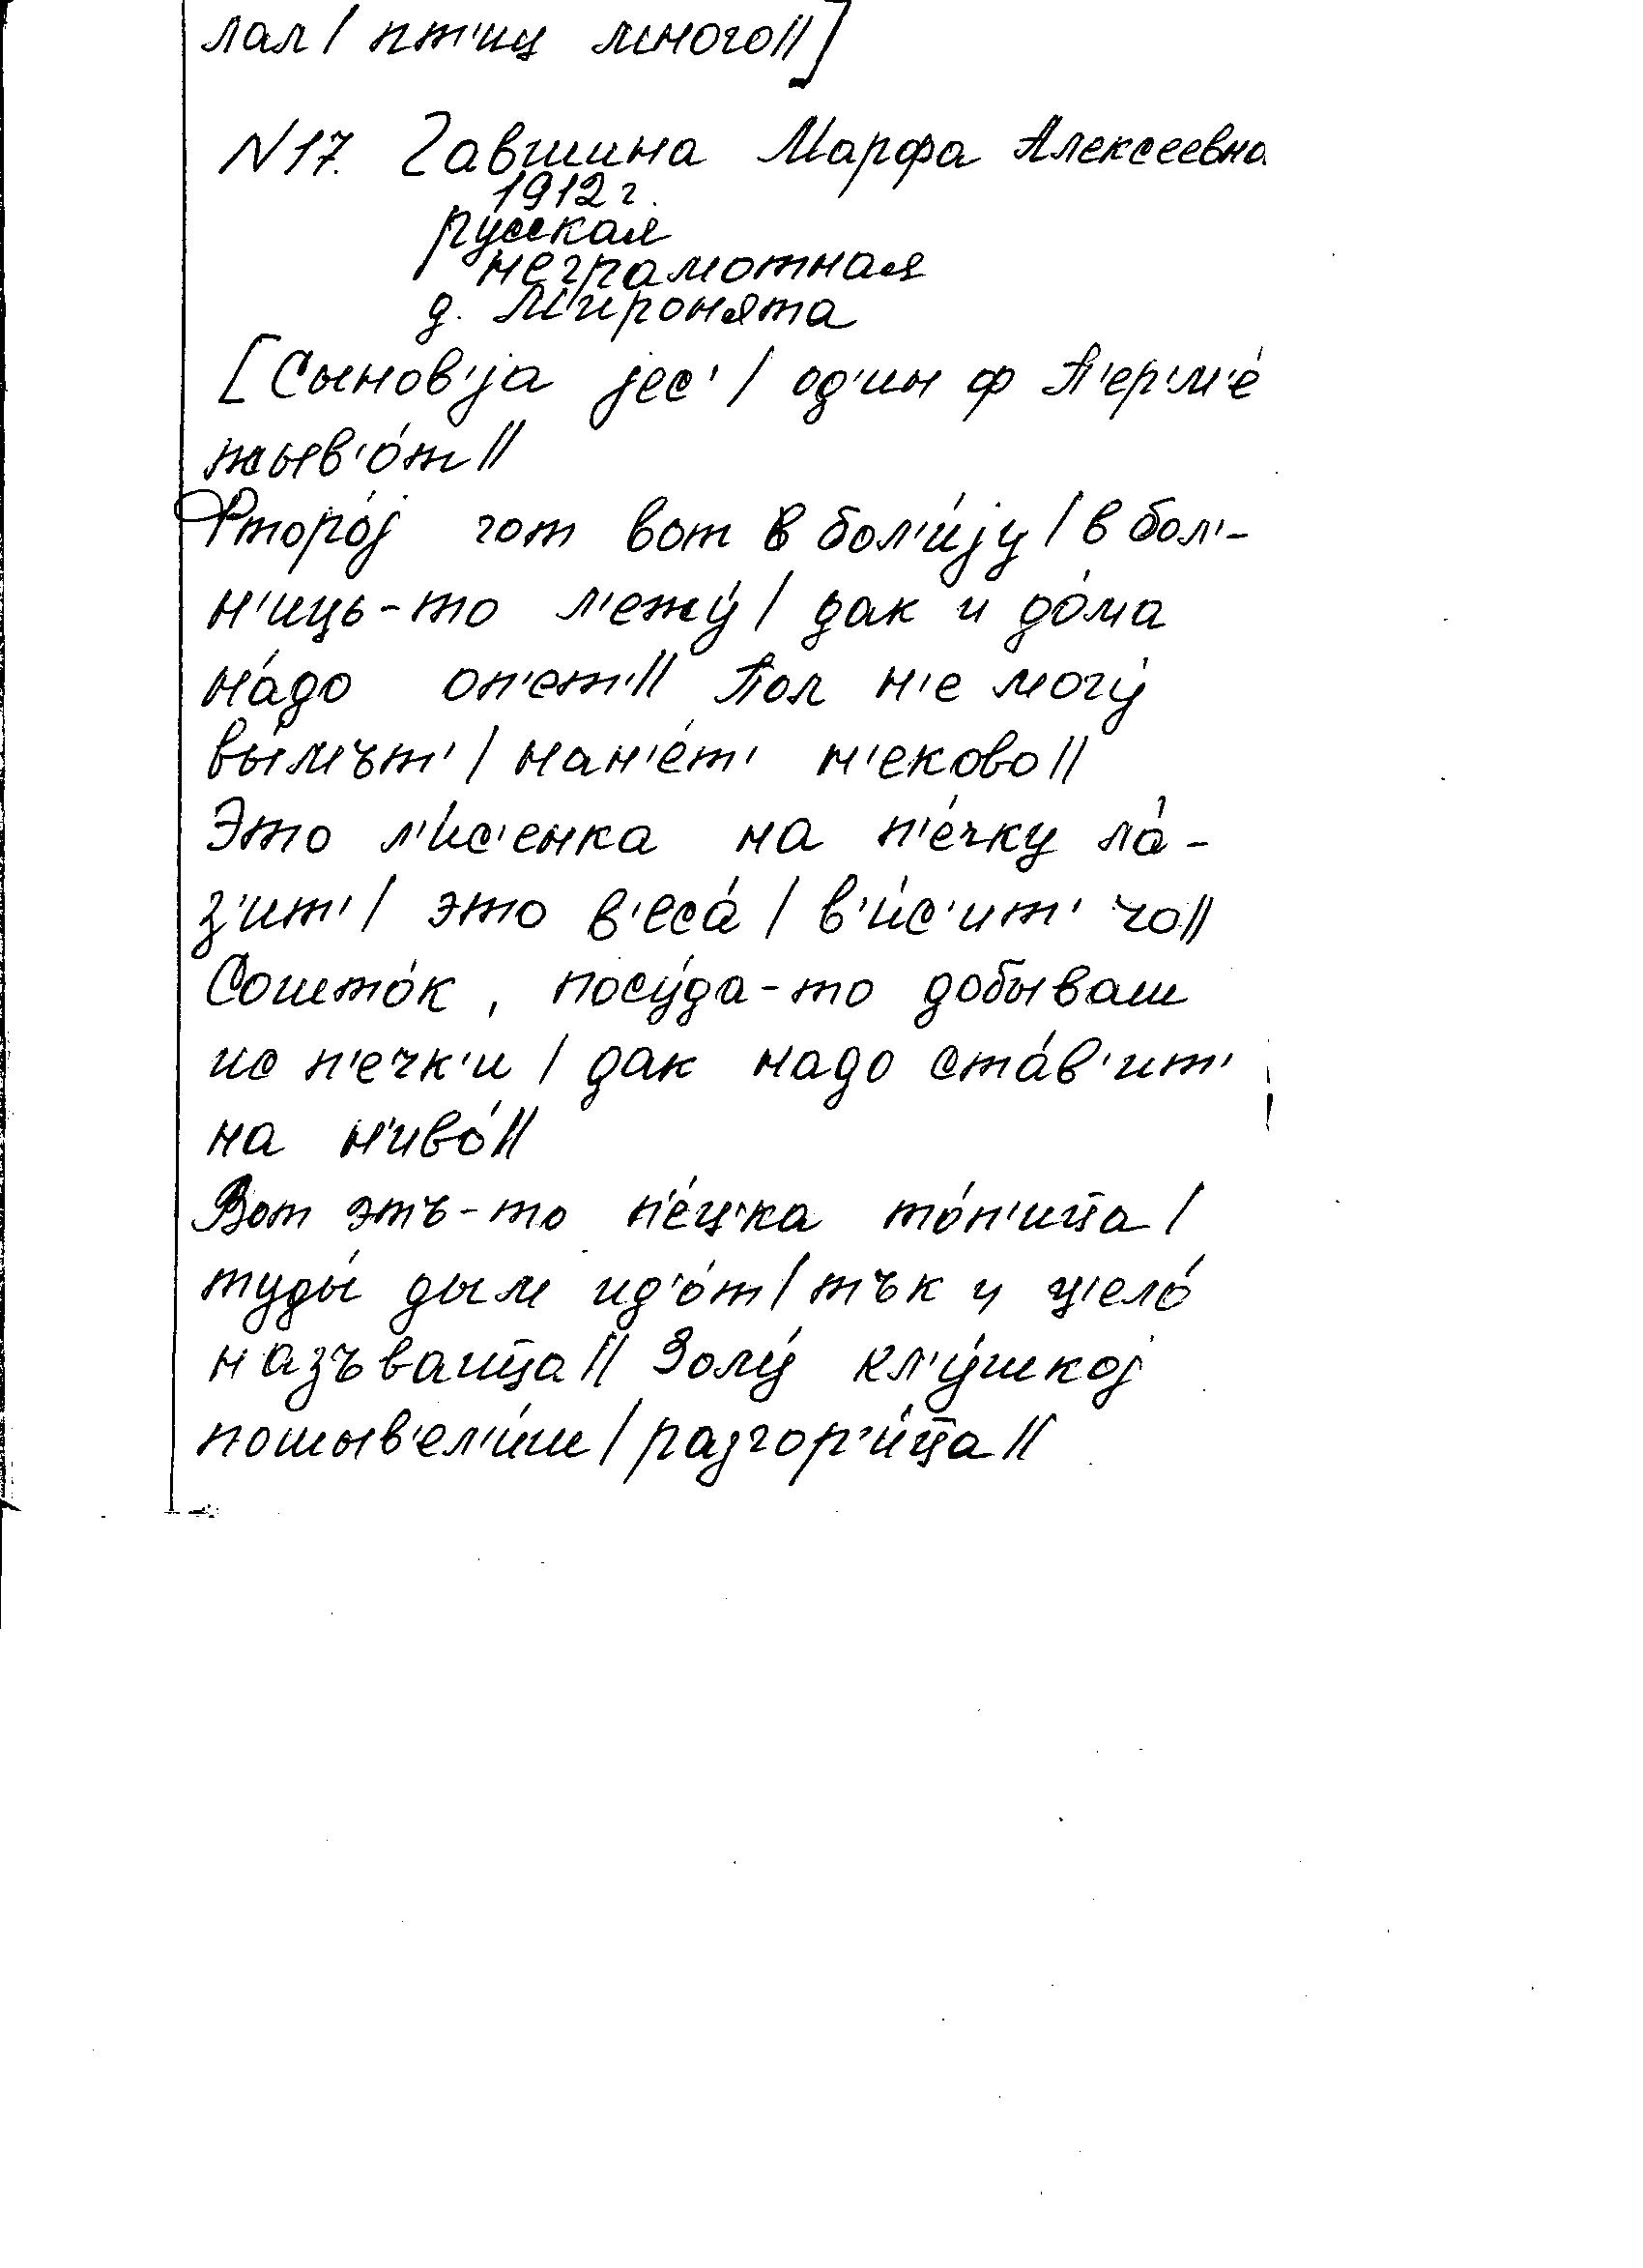 лал / пт'иц много//]
N17. Гавшина Марфа Алексеевна
1912 г.
русская
неграмотная
д. Миронята
[Сынов'jа jес' / од'ин ф П'ер'м'е́
жыв'о́т//
Фторо́j гот вот в бол'и́jу / в бол'-
н'иць-то л'ежу́ / дак и до́ма
на́до оп'ет'// Пол н'е могу́
вы́мът' / нан'е́т' н'еково//
Это л'и́с'енка на п'е́чку ла́-
з'ит' / это в'еса́ / в'и́с'ит' чо//
Сошто́к, посу́да-то добываш
ис п'ечк'и / дак надо ста́в'ит'
на н'иво́//
Вот этъ-то п'е́ц'ка то́п'ица /
туды́ дым ид'о́т / тък и ц'ело́
назъваица// Золу́ кл'у́шкоj
пошыв'ел'и́ш / разгор'и́ца//